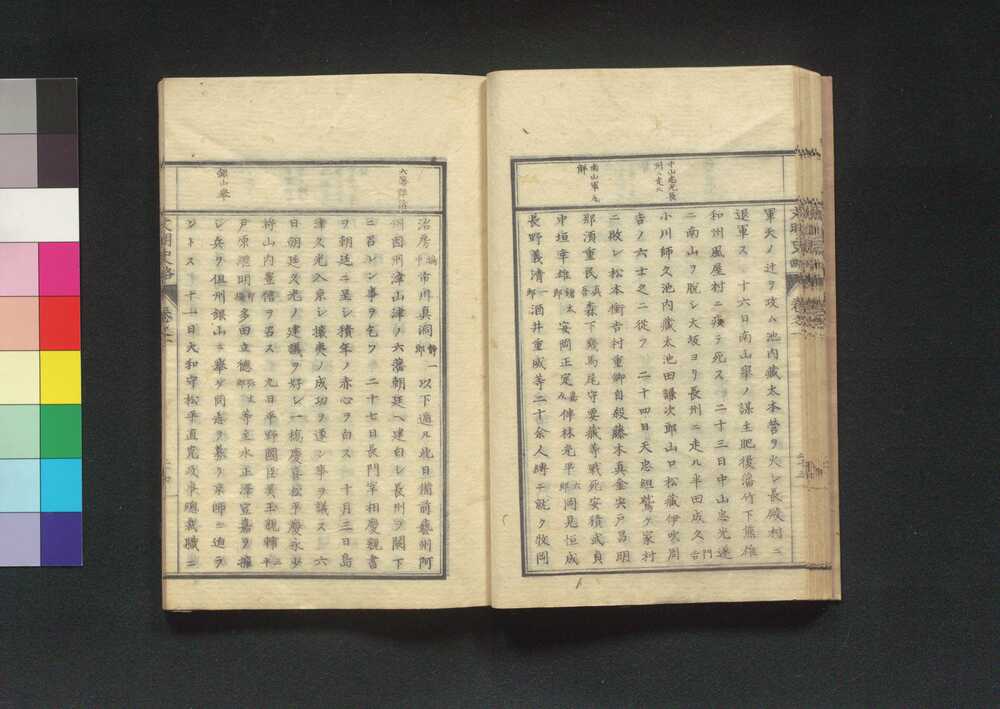 中山忠光長
州ニ走ル
南山軍尽
軍天ノ辻ヲ攻ム池内藏太本営ヲ火シ長殿村ニ
退軍ス 十六日南山挙ノ謀主肥後藩竹下熊雄
和州風屋村ニ疫テ死ス 二十三日中山忠光遂
ニ南山ヲ脱シ大坂ヨリ長州ニ走ル半田成久
小川師久池内藏太池田謙次郎山口松藏伊吹周
吉ノ六士之ニ從フ 二十四日天忠組鷲ケ家村
ニ敗レ松本衡吉村重郷自殺藤本真金宍戸昌明
那須重民真吾森下幾馬尾守要藏等戦死安積武貞
中垣幸雄太安岡正定嘉伴林光平六郎岡見恒成
長野義清一郎酒井重威等二十余人縛ニ就ク牧岡
六藩
銀山挙
治房市川真洞静一以下遁ル此日備前藝州阿
州因州津山津ノ六藩朝廷ヘ建白シ長州ヲ闕下
ニ召レン事ヲ乞フ 二十七日長門宰相慶親書
ヲ朝廷ニ呈シ積年ノ赤心ヲ白ス 十月三日島
津久光入京シ攘夷ノ成功ヲ遂ン事ヲ議ス 六
日朝廷久光ノ建議ヲ好シ一橋慶喜松平慶永少
将山内豊信ヲ召ス 九日平野國臣美玉親輔平
戸原継明多田立徳弥太郎等主水正澤宣嘉ヲ擁
シ兵ヲ但州銀山ニ挙ケ同志ヲ募リ京師ニ迫ラ
ントス 十一日大和守松平直克政事總裁職ニ
文明史略 巻之